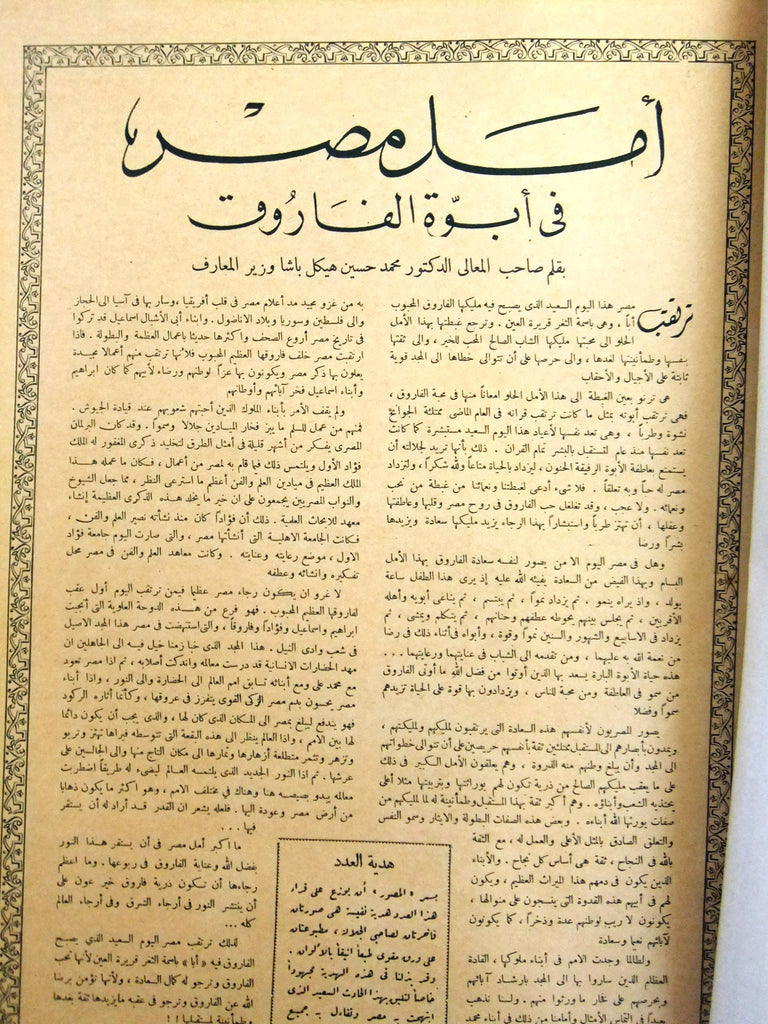 أمل مصر
فى أبوّة الفاروق
بقلم صاحب المعالى الدكتور محمد حسين هيكل باشا وزير المعارف
ترتقب
مصر هذا اليوم السعيد الذى يصبح فيه مليكها الفاروق المحبوب
أباً ، وهى باسمة الثغر قريرة العين . وترجع غبطتها بهذا الأمل
الحلو الى محبتها مليكها الشاب الصالح المحب للخير ، والى ثقتها
بنفسها وطمأنينتها لغدها ، والى حرصها على أن تتوالى خطاها الى المجد قوية
ثابتة على الأجيال والأحقاب
هى ترنو بعين الغبطة الى هذا الأمل الحلو امعاناً منها فى محبة الفاروق ،
فهى ترتقب أبوته بمثل ما كانت ترتقب قرانه فى العام الماضى ممتلئة الجوانح
نشوة وطرباً ، وهى تعد نفسها لأعياد هذا اليوم السعيد مستبشرة كما كانت
تعد نفسها منذ عام لتستقبل بالبشر تمام القران . ذلك بأنها تريد لجلالته أن
يستمتع بعاطفة الأبوة الرفيقة الحنون ، ليزداد بالحياة متاعاً ولله شكراً ، ولتزداد
مصر له حباً وبه تعلقاً . فلا شىء أدعى لغبطتنا ونعمائنا من غبطة من نحب
ونعمائه . ولا عجب ، وقد تغلغل حب الفاروق فى روح مصر وقلبها وعاطفتها
وعقلها ، أن تهتز طرباً واستبشاراً بهذا الرجاء يزيد مليكها سعادة ويزيدها
بشراً ورضا
وهل فى مصر اليوم الا من يصور لنفسه سعادة الفاروق بهذا الأمل
البسام وبهذا الفيض من السعادة يفيئه الله عليه إذ يرى هذا الطفل ساعة
يولد ، واذ يراه ينمو . ثم يزداد نمواً ، ثم يبتسم ، ثم يناغى أبويه وأهله
الأقربين ، ثم يجلس بينهم يحوطه عطفهم وحنانهم ، ثم يتكلم ويمشى ، ثم
يزداد فى الاسابيع والشهور والسنين نمواً وقوة ، وأبواه فى أثناء ذلك فى رضا
من نعمة الله به عليهما ، ومن تقدمه الى الشباب فى عنايتهما ورعايتهما . . .
هذه حياة الأبوة البارة يسعد بها الذين أوتوا من فضل الله ما أوتى الفاروق
من سمو فى العاطفة ومن محبة للناس ، ويزدادون بها قوة على الحياة تزيدهم
سمواً وفضلا
يصور المصريون لأنفسهم هذه السعادة التى يرتقبون لمليكهم ولمليكتهم ،
ويمدون بأبصارهم الى المستقبل ممتلئين ثقة بأنفسهم حريصين على أن تتوالى خطواتهم
الى المجد وأن يبلغ وطنهم منه الذروة . وهم يعلقون الأمل الكبير فى ذلك
على ما يعقب مليكهم الصالح من ذرية تكون لهم بوراثتها وبتربيتها مثلا أعلى
يحتذيه الشعب وأبناؤه . وهم أكبر ثقة بهذا المستقبل وطمأنينة له لما لمليكهم من
صفات يورثها الله أبناءه . وبعض هذه الصفات البطولة والايثار وسمو النفس
والتعلق الصادق بالمثل الأعلى والعمل له ، مع الثقة
بالله فى النجاح ، ثقة هى أساس كل نجاح . والأبناء
الذين يكون فى دمهم هذا الميراث العظيم ، ويكون
لهم فى أبيهم هذه القدوة التى ينسجون على منوالها ،
يكونون لا ريب لوطنهم عدة وذخراً ، كما يكونون
لآبائهم نعما وسعادة
ولطالما وجدت الامم فى أبناء ملوكها ، القادة
العظام الذين ساروا بها الى المجد بارشاد آبائهم
وبحرصهم على فخار ما ورثوا منهم . ولسنا نذهب
بعيداً فى التماس الأمثال وأمامنا من ذلك فى أبناء محمد
به من غزو مجيد مد أعلام مصر فى قلب أفريقيا ، وسار بها فى آسيا الى الحجاز
والى فلسطين وسوريا وبلاد الاناضول . وابناء أبى الأشبال اسماعيل قد تركوا
فى تاريخ مصر أروع الصحف وأكثرها حديثا باعمال العظمة والبطولة . فاذا
ارتقبت مصر خلف فاروقها العظيم المحبوب فلأنها ترتقب منهم أعمالا مجيدة
يعلون بها ذكر مصر ويكونون بها عزاً لوطنهم ورضاء لأبيهم كما كان ابراهيم
وأبناء اسماعيل فخر آبائهم وأوطانهم
ولم يقف الأمر بأبناء الملوك الذين أحبتهم شعوبهم عند قيادة الجيوش .
فمنهم من عمل للسلم ما يبز فخار الميادين جلالا وسمواً . وقد كان البرلمان
المصرى يفكر من أشهر قليلة فى أمثل الطرق لتخليد ذكرى المغفور له الملك
فؤاد الأول ويلتمس ذلك فيما قام به لمصر من أعمال ، فكان ما عمله هذا
الملك العظيم فى ميادين العلم والفن أعظم ما استرعى النظر ، مما جعل الشيوخ
والنواب المصريين يجمعون على ان خير ما يخلد هذه الذكرى العظيمة إنشاء
معهد للابحاث العلمية . ذلك أن فؤاداً كان منذ نشأته نصير العلم والفن ،
فكانت الجامعة الاهلية التى أنشأتها مصر ، والتى صارت اليوم جامعة فؤاد
الاول ، موضع رعايته وعنايته . وكانت معاهد العلم والفن فى مصر محل
تفكيره وانشائه وعطفه
لا غرو ان يكون رجاء مصر عظيما فيمن ترتقب اليوم أول عقب
لفاروقها العظيم المحبوب . فهو فرع من هذه الدوحة العلوية التى أنجبت
ابراهيم واسماعيل وفؤاداً وفاروقاً ، والتى استنهضت فى مصر هذا المجد الاصيل
فى شعب وادى النيل . هذا المجد الذى خبا زمنا خيل فيه الى الجاهلين ان
مهد الحضارات الانسانية قد درست معالمه واندكت أصلابه ، ثم اذا مصر تعود
مع محمد على ومع أبنائه تسابق امم العالم الى الحضارة والى النور ، واذا أبناء
مصر يحسون بدم مصر الزكى القوى يتفزز فى عروقها ، وكأنما أثاره الركود
فهو يندفع ليبلغ بمصر الى المكان الذى كان لها ، والذى يجب أن يكون دائما
لها بين الامم ، واذا العالم ينظر الى هذه البقعة التى تتوسطه فيراها تهتز وتربو
وتزهر وتثمر متطلعة أزهارها وثمارها الى مكان التاج منها والى الجالسين على
عرشها . ثم اذا النور الجديد الذى يلتمسه العالم ليضىء له طريقاً اضطربت
معالمه يبدو بصيصه هنا وهناك فى مختلف الامم ، وهو اكثر ما يكون ذهابا
من أرض مصر وعودة اليها . فلعله يشعر ان القدر قد أراد له أن يستقر
فيها . . .
ما اكبر أمل مصر فى أن يستقر هذا النور
بفضل الله وعناية الفاروق فى ربوعها . وما اعظم
رجاءها أن تكون ذرية فاروق خير عون على
أن ينتشر النور فى أرجاء الشرق وفى أرجاء العالم
كله . . .
لذلك ترتقب مصر اليوم السعيد الذى يصبح
الفاروق فيه « أبا » باسمة الثغر قريرة العين لأنها تحب
الفاروق وترجو له كمال السعادة ، ولأنها تؤمن برضا
الله عن الفاروق وترجو فى عقبه ما يزيدها ثقة بغدها
وطمأنينة لمستقبلها ! !
هدية العدد
يسر « المصور » أن يوزع على قراء
هذا العدد هدية نفيسة هى صورتان
فاخرتان لصاحبى الجلالة ، مطبوعتان
على ورق مقوى طبعاً أنيقاً بالألوان .
وقد بذلنا فى هذه الهدية مجهوداً
خاصاً لتليق بهذا الحادث السعيد الذى
ابتهجت به مصر وتفاءل به جميع